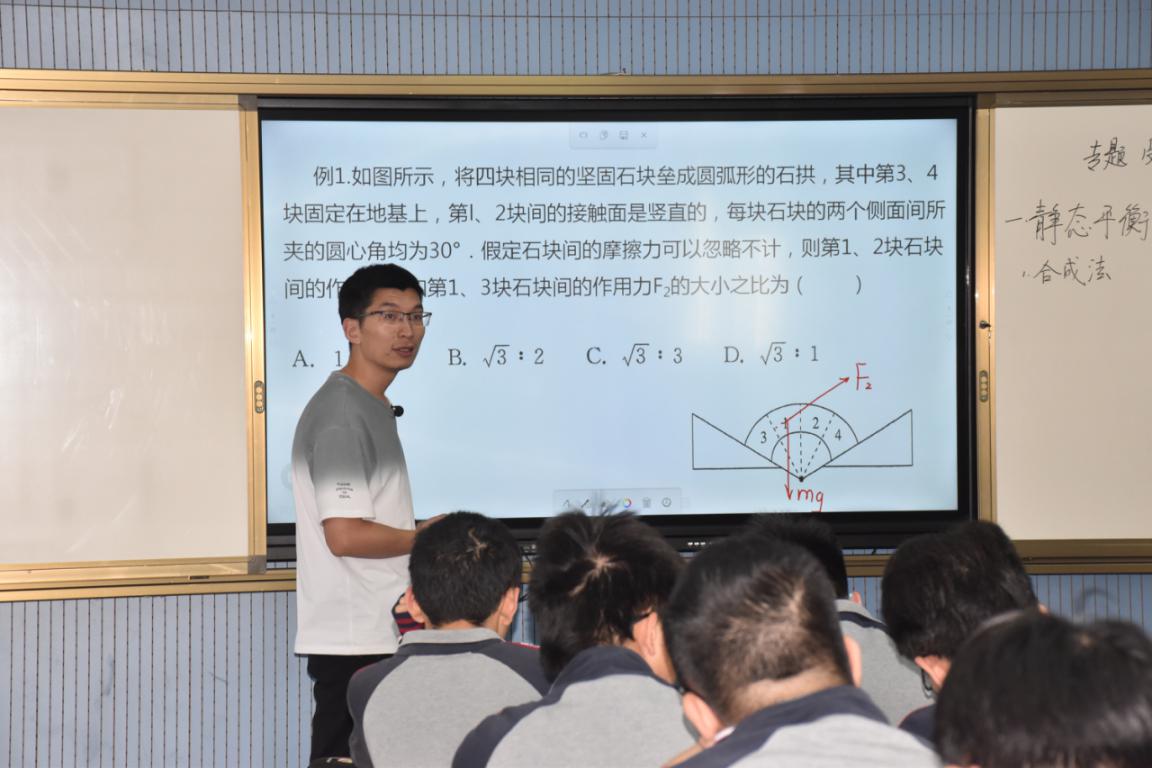 例1.如图所示，将四块相同的坚固石块垒成圆弧形的石拱，其中第3、4
块固定在地基上，第l、2块间的接触面是竖直的，每块石块的两个侧面间所
夹的圆心角均为30°．假定石块间的摩擦力可以忽略不计，则第1、2块石块
间的作 第1、3块石块间的作用力F₂的大小之比为（　　）
A. 1 B. √3∶2 C. √3∶3 D. √3∶1
F₂
3 1 2 4
mg
专题
一.静态平衡
1.合成法